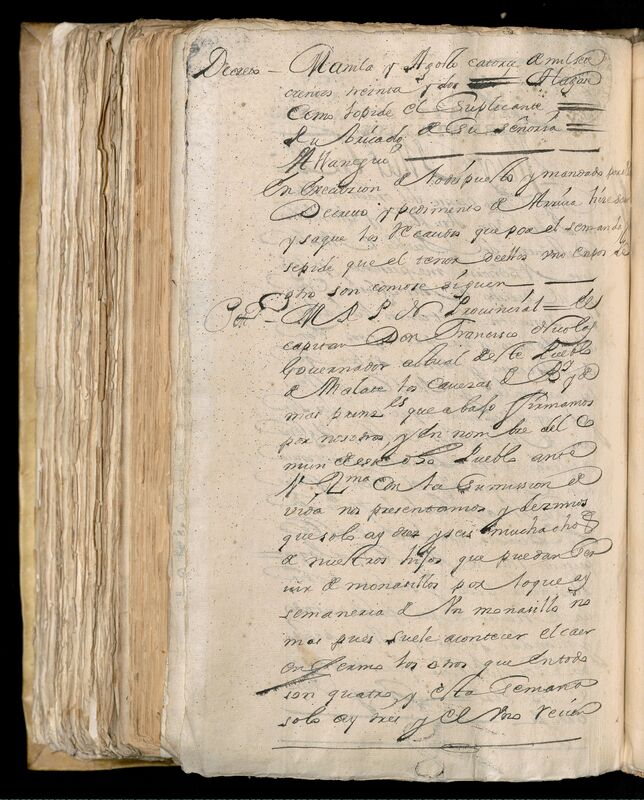 Decreto - Manila y Agosto catorze de mil sete
cientos treinta y dos == Hagase
Como lo pide el Suplicante ==
de su Srio de Su Señoria ==
Mtra
En execuzion de lo dispuesto y mandado por el
Decreto y pedimento de Arriva hize sacar
y saque los Recaudos que por el se manda y
se pide que el tenor de ellos uno en pos de
otro son como se siguen —
M. R. P. N. Provincial = el
capitan Don Francisco Nicolas
Governador actual de este Pueblo
de Malate los caveзas de Bgy y de
mas prinz.les que abajo firmamos
por nosotros, y en nombre del Co
mun de este dho Pueblo ante
V. P. con la sumission de
vida nos presentamos y dezimos
que solo ay diez y seis muchachos
de nuestros hijos que puedan Ser
uir de monasillos por lo que ay
semaneria de Un monasillo no
mas pues suele acontecer el caer
enfermo los otros que entodo
son quatro, y esta Semana
solo ay tres y el Uno recien